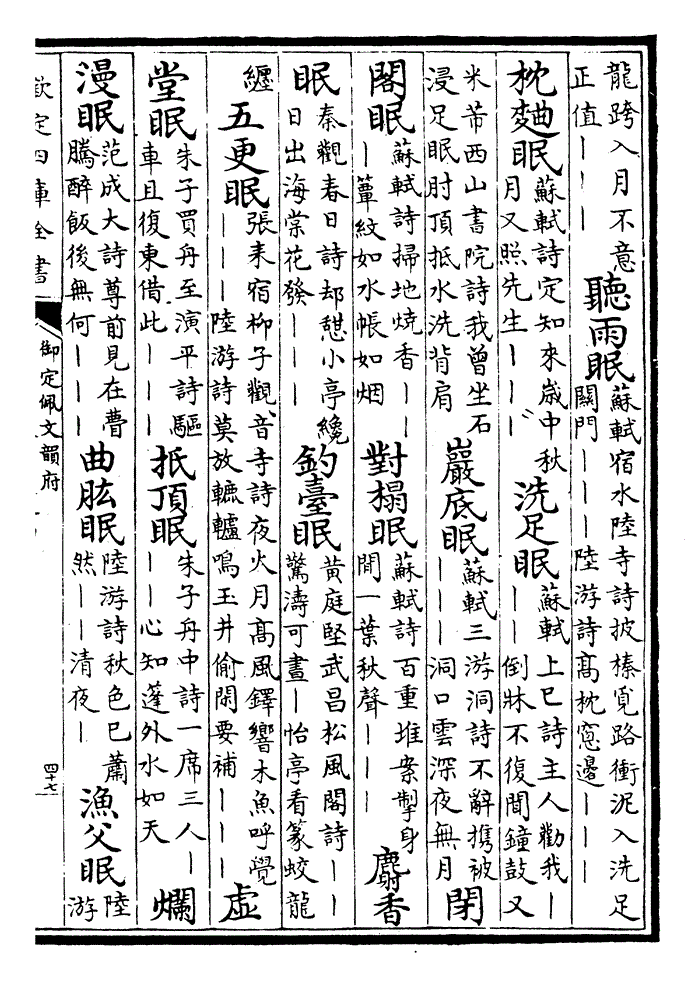 龍跨入月不意正值｜｜｜聽雨眠蘇軾宿水陸寺詩披榛覓路衝泥入洗足關門｜｜｜陸游詩高枕窓邊｜｜｜
枕麴眠蘇軾詩定知來歲中秋月又照先生｜｜〻洗足眠蘇軾上巳詩主人勸我｜｜｜倒牀不復聞鐘鼓又
米芾西山書院詩我曾坐石浸足眠肘頂抵水洗背肩巖底眠蘇軾三游洞詩不辭携被｜｜｜洞口雲深夜無月閉
閣眠蘇軾詩掃地燒香｜｜｜簟紋如水帳如烟對榻眠蘇軾詩百重堆案掣身閒一葉秋聲｜｜｜麝香
眠秦觀春日詩却憩小亭纔日出海棠花發｜｜｜釣臺眠黃庭堅武昌松風閣詩｜｜驚濤可晝｜怡亭看篆蛟龍
纏五更眠張耒宿柳子觀音寺詩夜火月高風鐸響木魚呼覺｜｜｜陸游詩莫放轆轤鳴玉井偷閒要補｜｜｜虛
堂眠朱子買舟至演平詩驅車且復東借此｜｜｜抵頂眠朱子舟中詩一席三人｜｜｜心知蓬外水如天爛
漫眠范成大詩尊前見在曹騰醉飯後無何｜｜｜曲肱眠陸游詩秋色已蕭然｜｜清夜｜漁父眠陸游
欽定四庫全書
御定佩文韻府
四十七